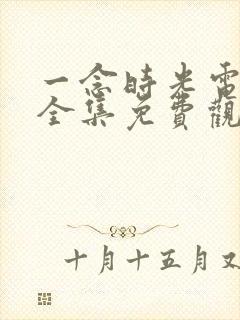 一念時光電
全集免費觀
十月十五月又